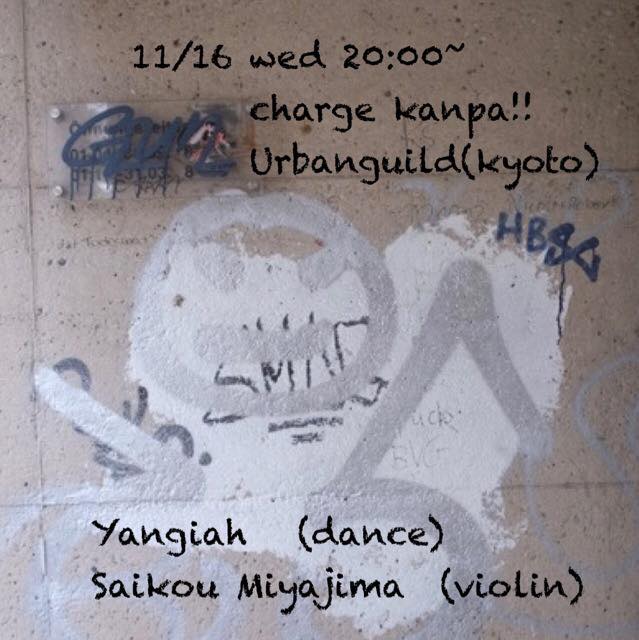 11/16 wed 20:00~
charge kanpa!!
Urbanguild(kyoto)
HBSG
BVG
Yangiah (dance)
Saikou Miyajima (violin)